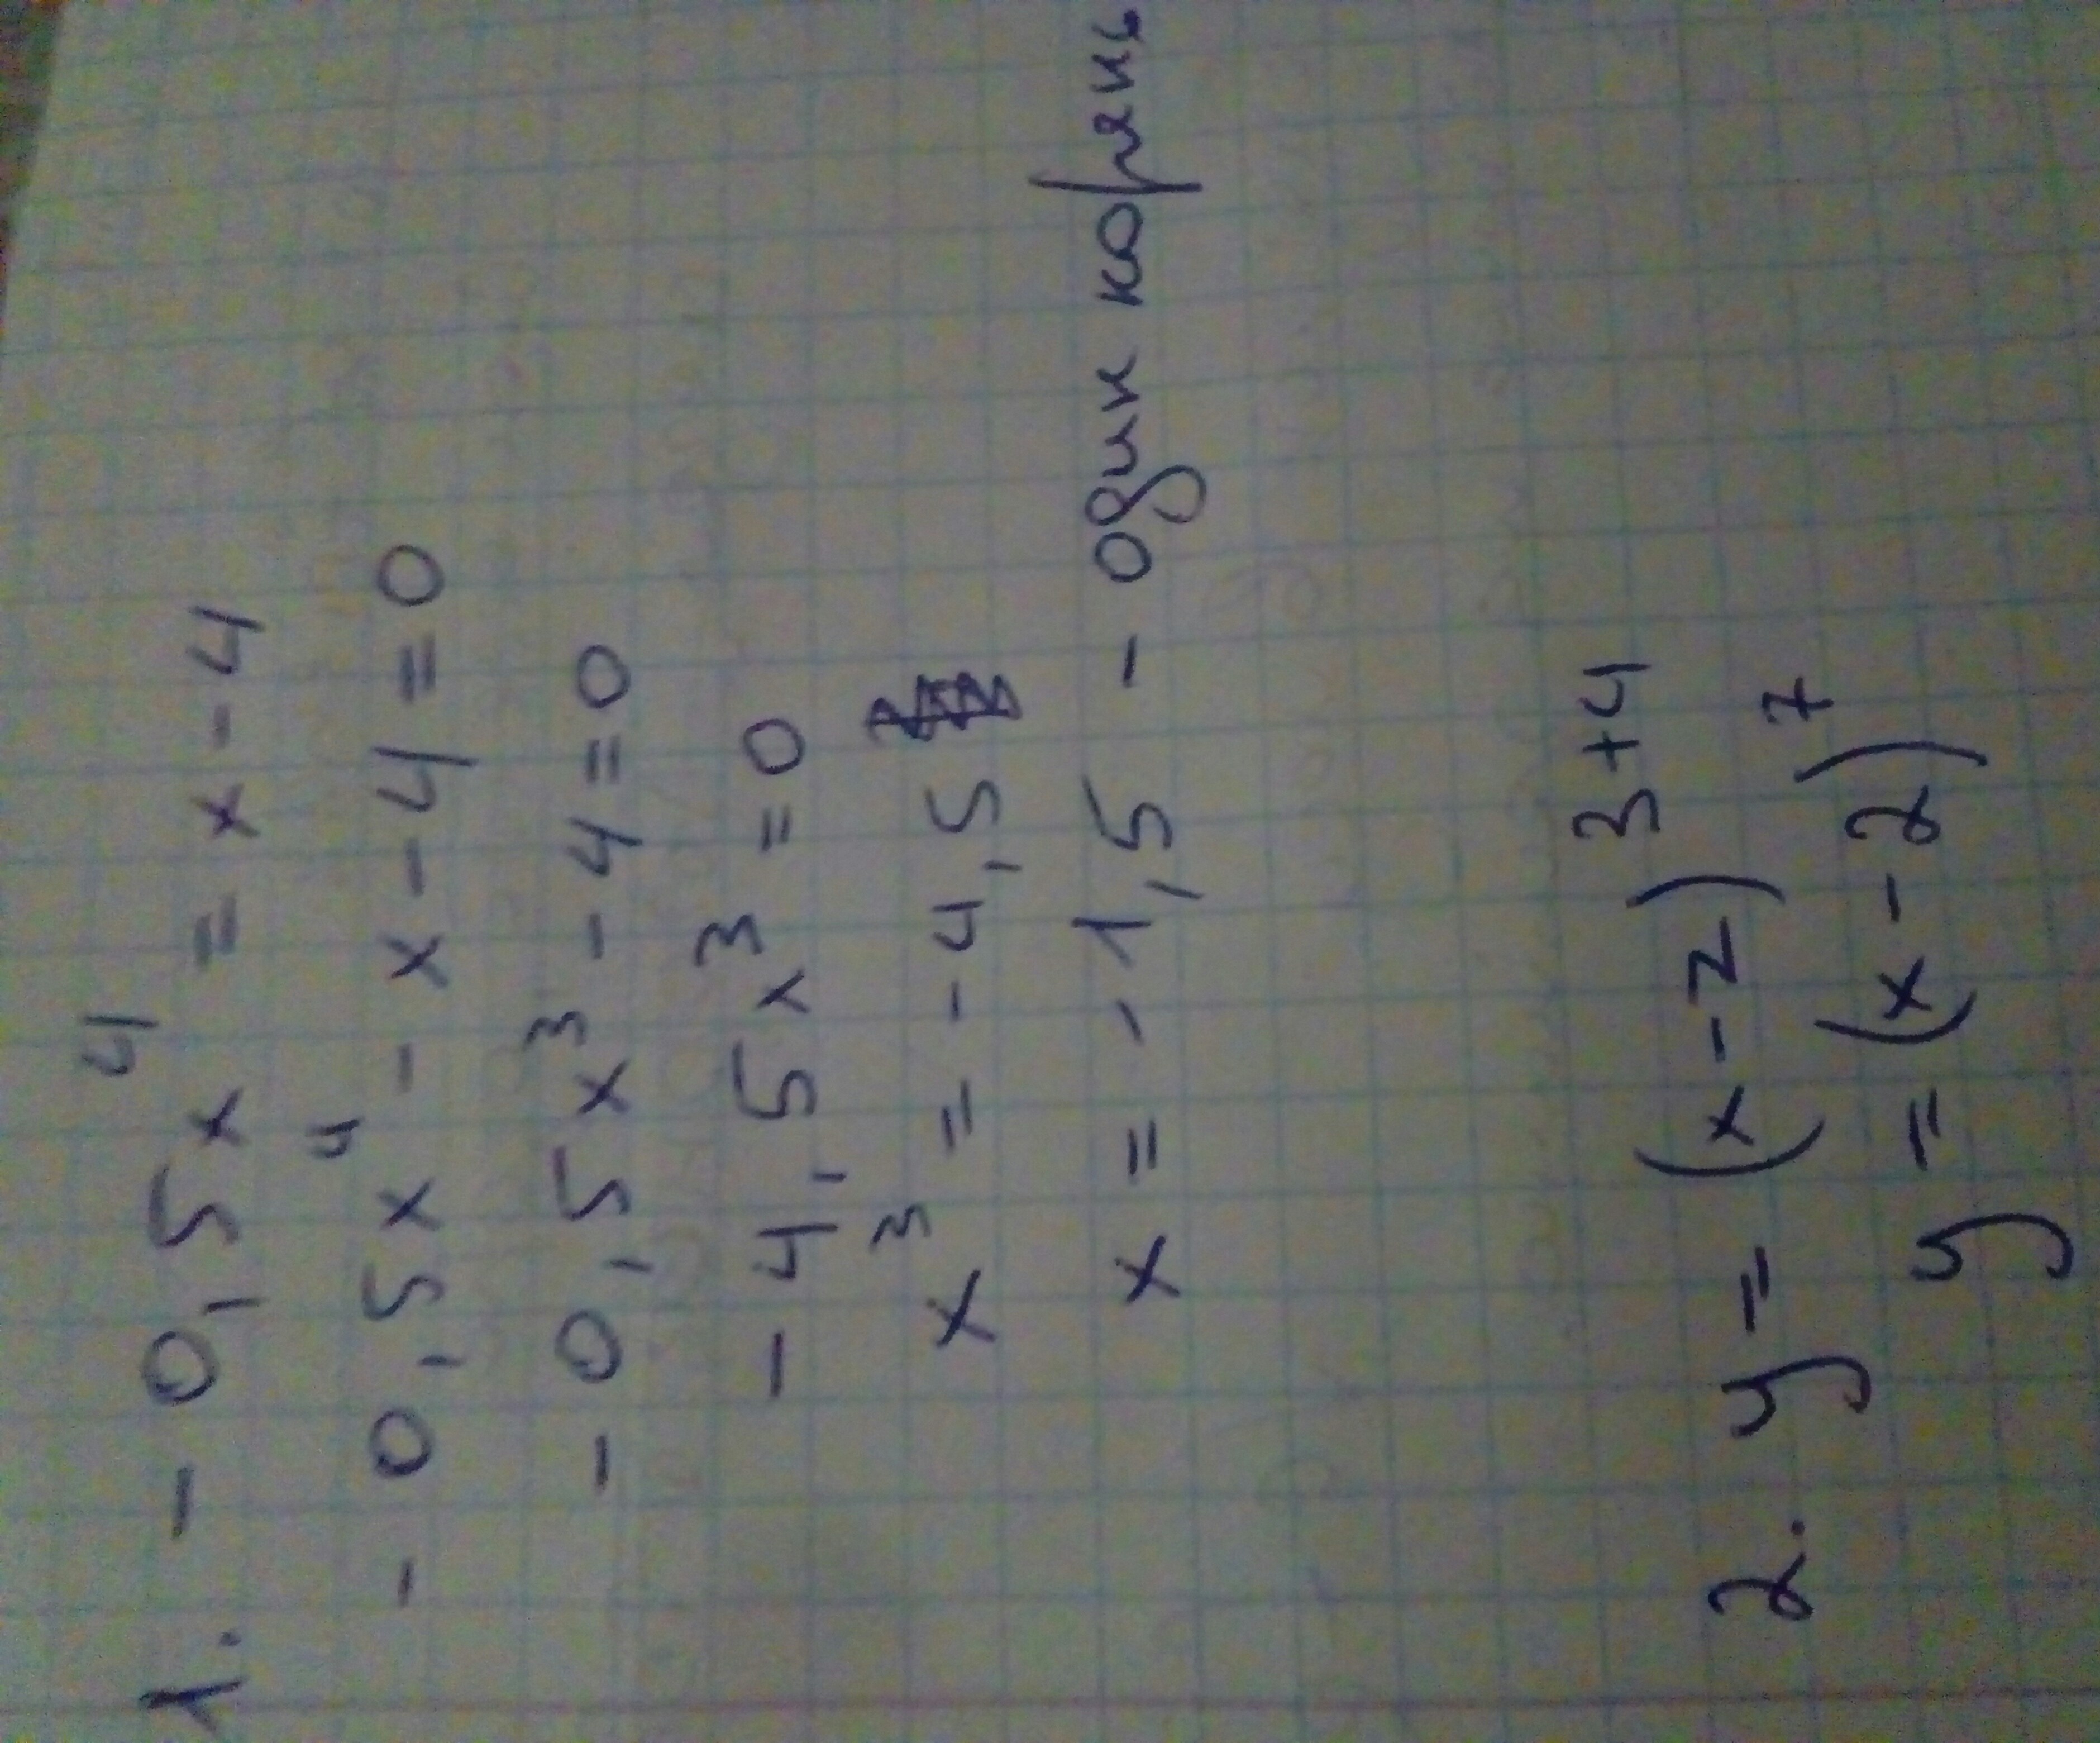 1. - 0,5x⁴ = x - 4
- 0,5x⁴ - x - 4 = 0
- 0,5x³ - 4 = 0
- 4,5x³ = 0
x³ = - 4,5
x = - 1,5 - один корень
2. y = (x - 2)³⁺⁴
y = (x - 2)⁷